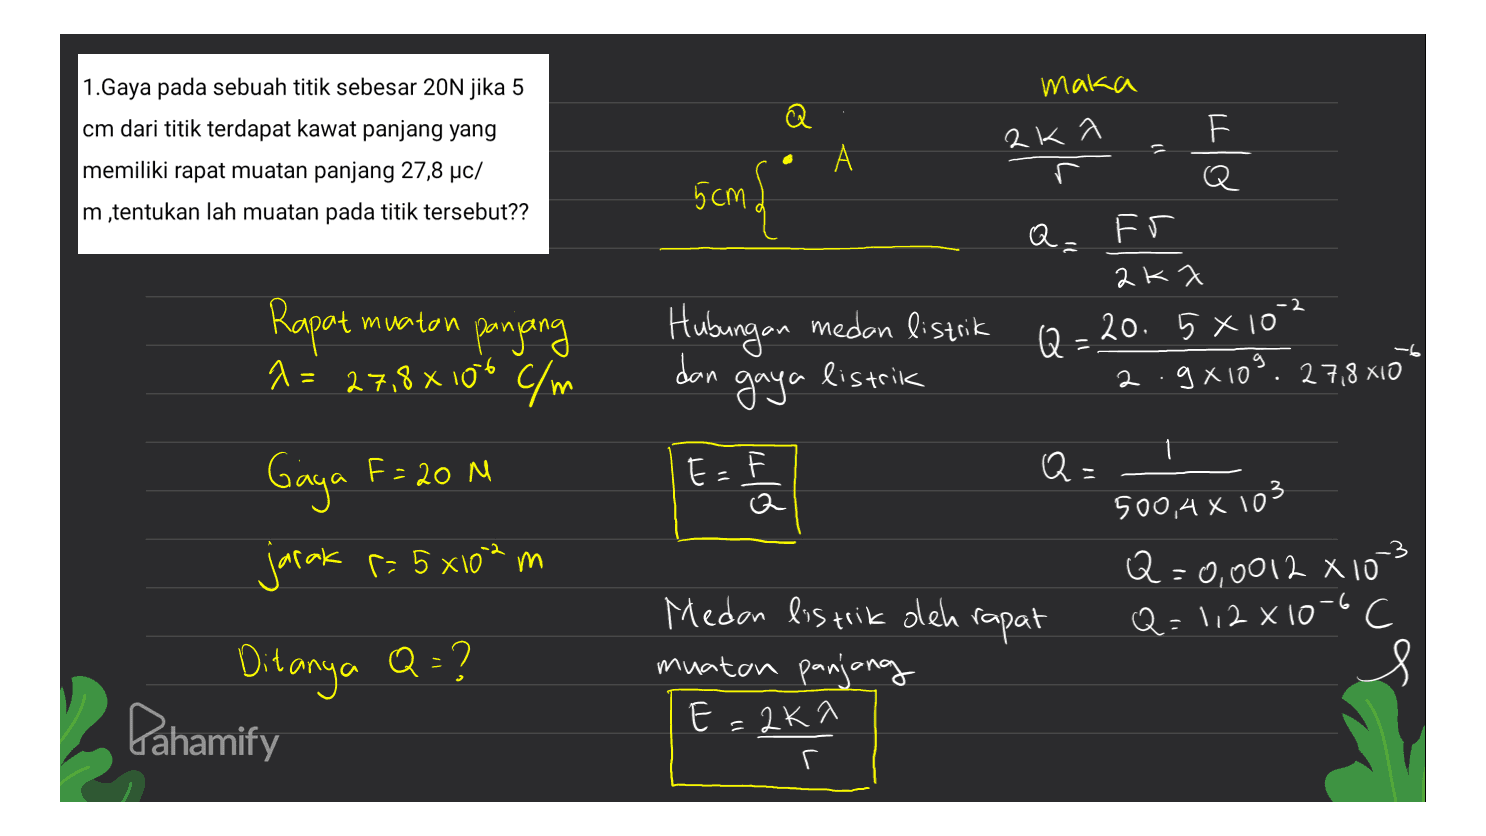 1.Gaya pada sebuah titik sebesar 20N jika 5
cm dari titik terdapat kawat panjang yang
memiliki rapat muatan panjang 27,8 μc/
m ,tentukan lah muatan pada titik tersebut??
Rapat muatan panjang
λ = 27,8 × 10⁻⁶ C/m
Gaya F = 20 N
jarak r = 5 × 10⁻² m
Ditanya Q = ?
Q
A
5 cm
Hubungan medan listrik
dan gaya listrik
E = F/Q
Medan listrik oleh rapat
muatan panjang
E = 2Kλ/r
maka
2Kλ/r = F/Q
Q = Fr/2Kλ
Q = 20. 5 × 10⁻² / 2 . 9 × 10⁹ . 27,8 × 10⁻⁶
Q = 1 / 500,4 × 10³
Q = 0,0012 × 10⁻³
Q = 1,2 × 10⁻⁶ C
Pahamify